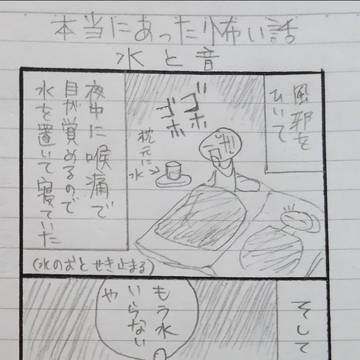 本当にあった怖い話
水と音
風邪を
ひいて
ゴホ
ゴホ
枕元に
水
夜中に喉痛で
目が覚めるので
水を置いて寝ていた
(水のむとせき止まる)
そして
もう水
いらない
や